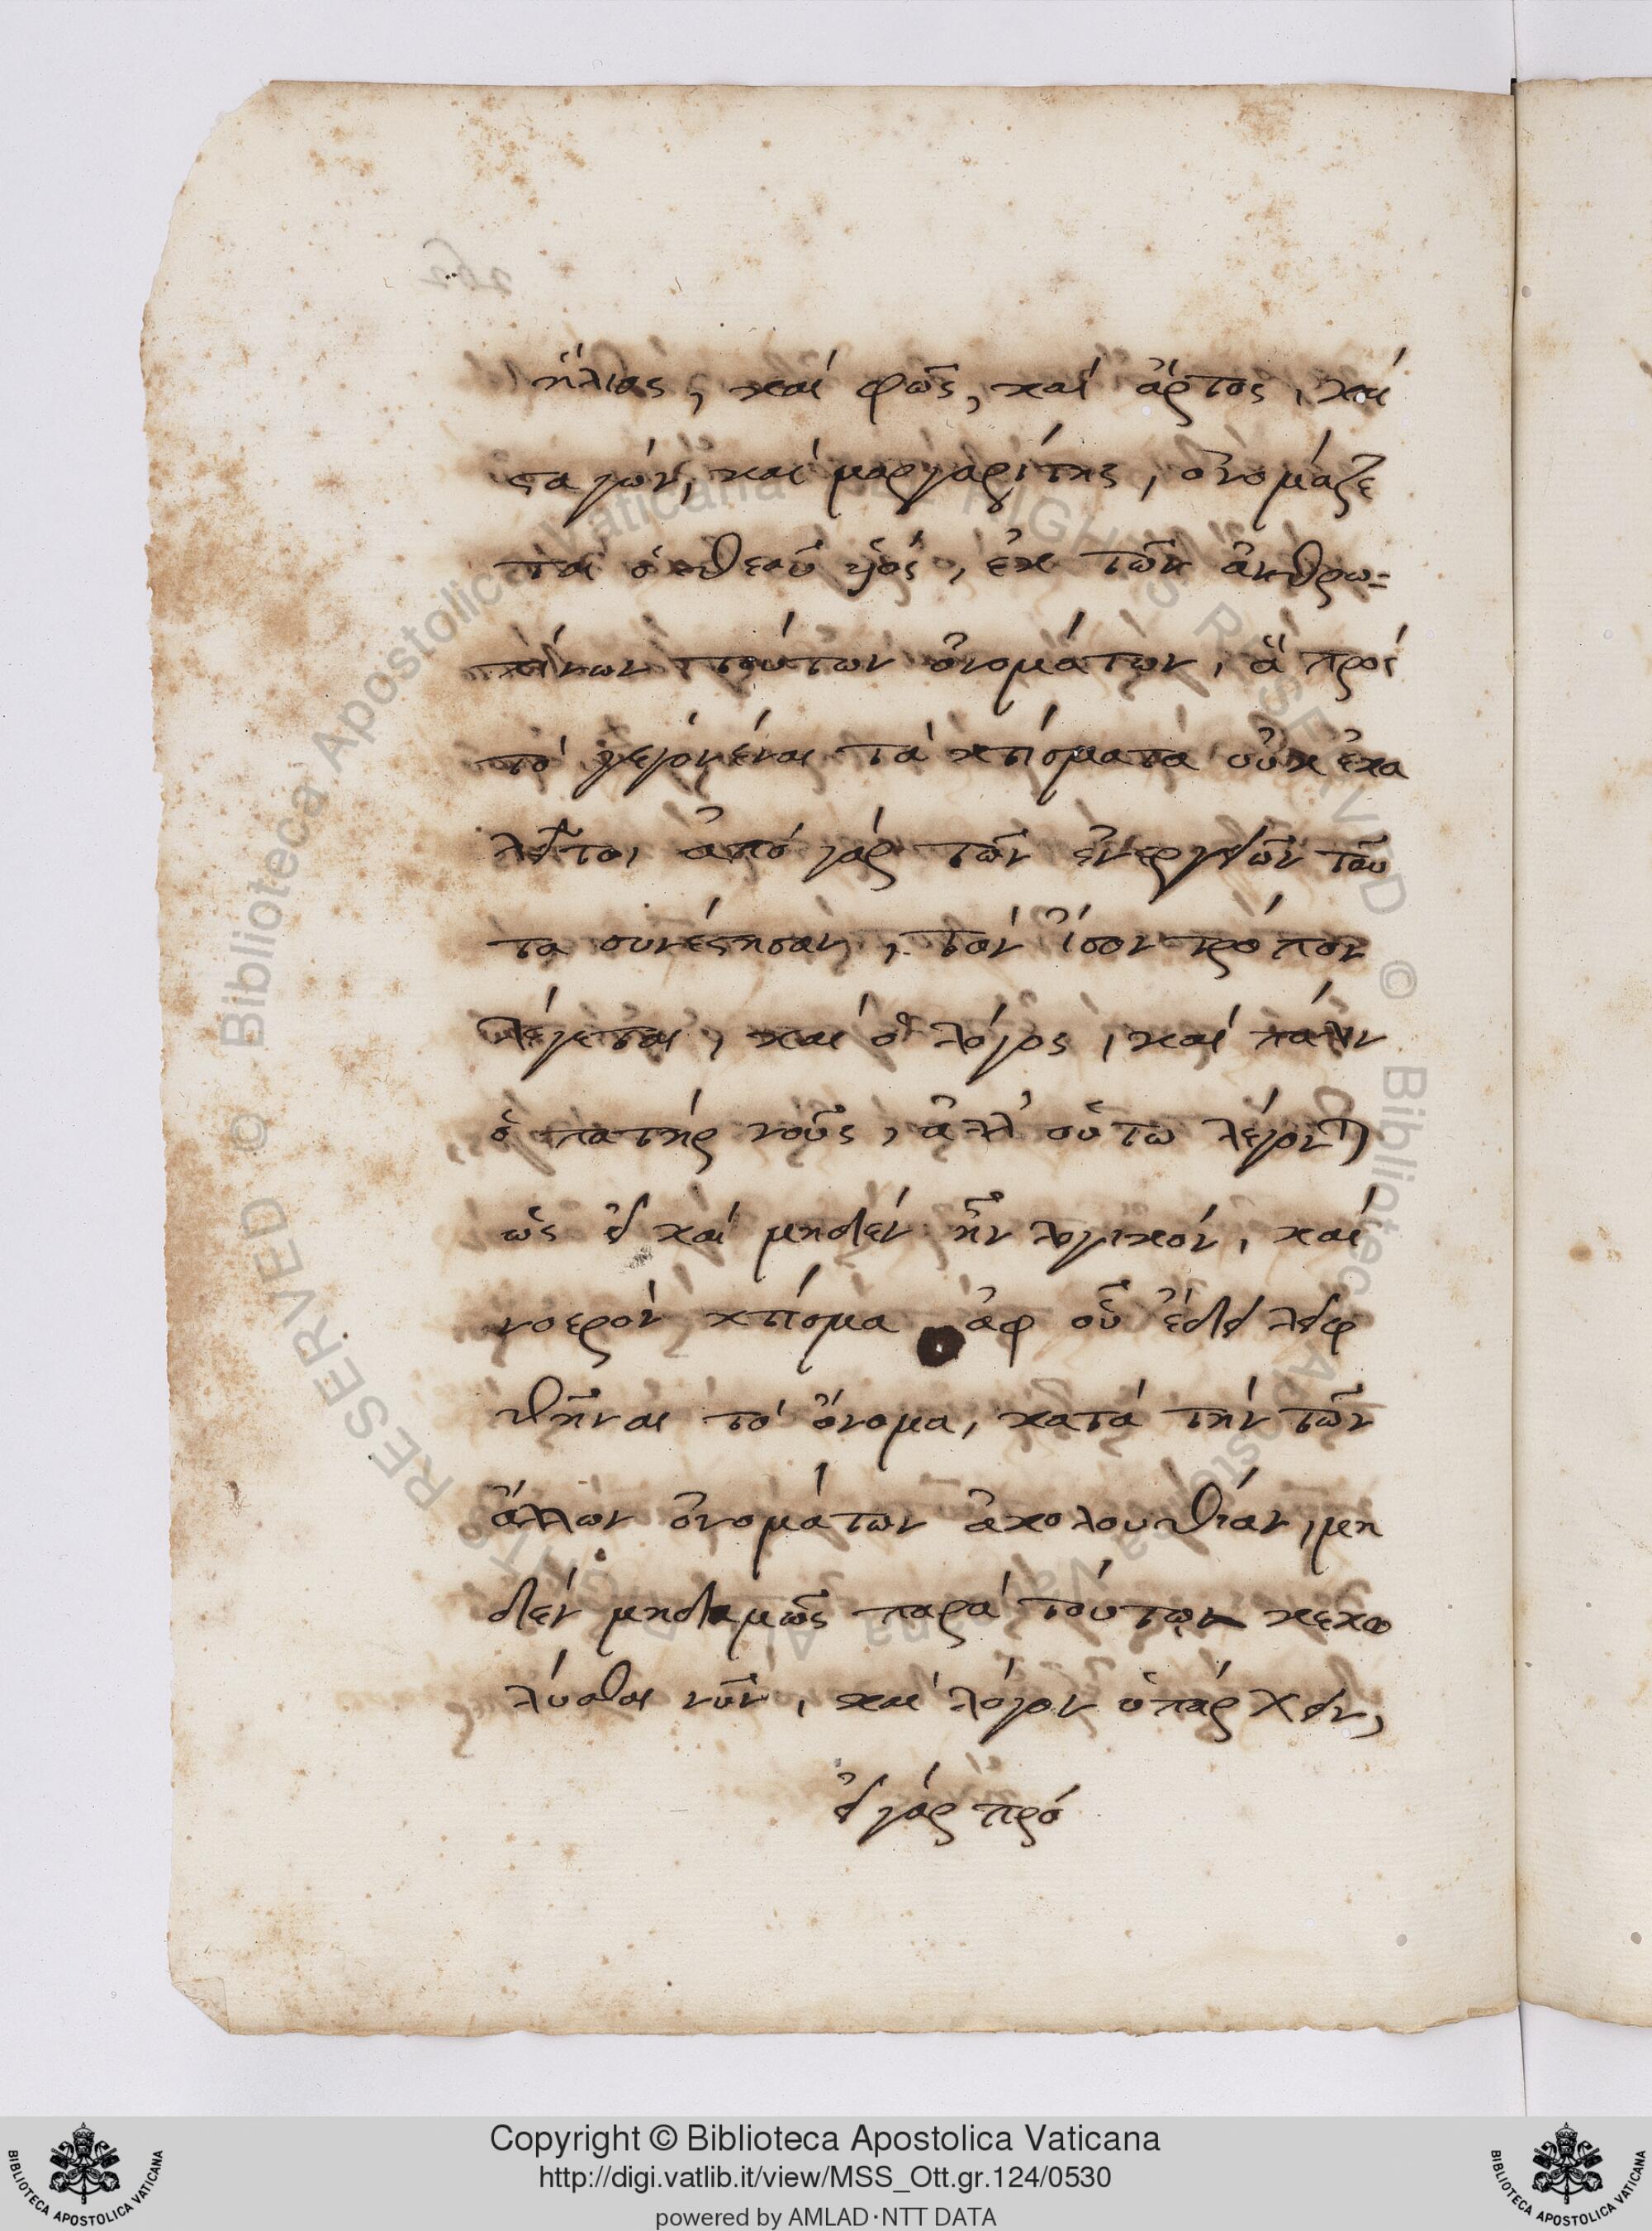 ἥλιος, καὶ φῶς, καὶ ἄρτος, καὶ
σταγών, καὶ μαργαρίτης, ὀνομάζε
ται ὁ θεοῦ υἱός, ἐκ τῶν ἀνθρω=
πίνων τούτων ὀνομάτων, ἃ πρὸ
τοῦ γεγονέναι τὰ κτίσματα οὐκ ἐκα
λεῖτο, ἀπὸ γὰρ τῶν ἐνεργειῶν ταῦ
τα συνέστησαν, τὸν ἴσον τρόπον
λέγεται, καὶ ὁ λόγος, καὶ πάλιν
ὁ πατὴρ νοῦς, ἀλλ' οὕτω λέγονται
ὡς εἰ καὶ μηδὲν ἦν λογικόν, καὶ
νοερὸν κτίσμα ἀφ οὗ ἔδει λειφ
θῆναι τὸ ὄνομα, κατὰ τὴν τῶν
ἄλλων ὀνομάτων ἀκολουθίαν, μη
δὲν μηδαμῶς παρὰ τούτων κεκω
λύσθαι νῦν, καὶ λόγον ὑπάρχειν,
εἰ γὰρ πρὸ
Copyright © Biblioteca Apostolica Vaticana
http://digi.vatlib.it/view/MSS_Ott.gr.124/0530
powered by AMLAD·NTT DATA